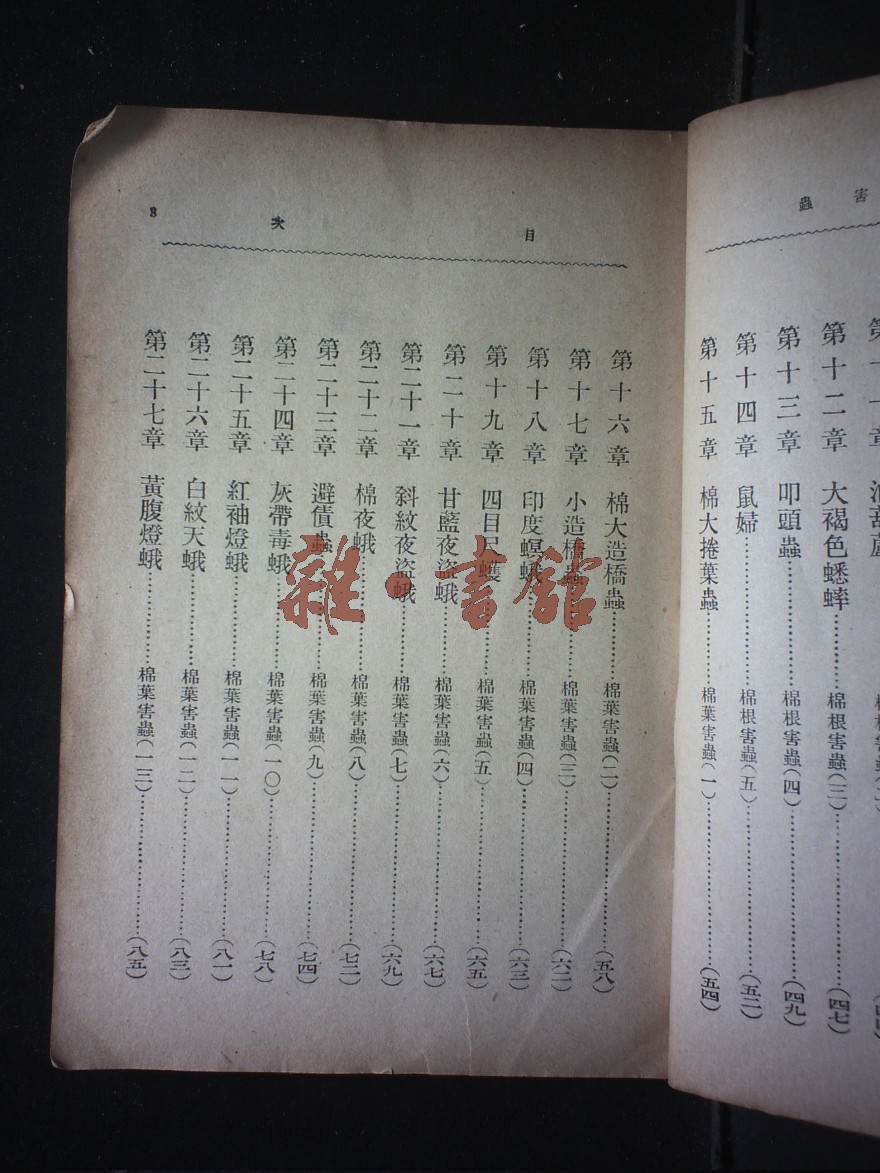 害蟲
第十二章　大褐色蟋蟀……棉根害蟲(三)……(四七)
第十三章　叩頭蟲……棉根害蟲(四)……(四九)
第十四章　鼠婦……棉根害蟲(五)……(五二)
第十五章　棉大捲葉蟲……棉葉害蟲(一)……(五四)
目次　3
第十六章　棉大造橋蟲……棉葉害蟲(二)……(五八)
第十七章　小造橋蟲……棉葉害蟲(三)……(六二)
第十八章　印度螟蛾……棉葉害蟲(四)……(六三)
第十九章　四目尺蠖……棉葉害蟲(五)……(六五)
第二十章　甘藍夜盜蛾……棉葉害蟲(六)……(六七)
第二十一章　斜紋夜盜蛾……棉葉害蟲(七)……(六九)
第二十二章　棉夜蛾……棉葉害蟲(八)……(七二)
第二十三章　避債蟲……棉葉害蟲(九)……(七四)
第二十四章　灰帶毒蛾……棉葉害蟲(一〇)……(七八)
第二十五章　紅袖燈蛾……棉葉害蟲(一一)……(八一)
第二十六章　白紋天蛾……棉葉害蟲(一二)……(八三)
第二十七章　黃腹燈蛾……棉葉害蟲(一三)……(八五)
雜·書館